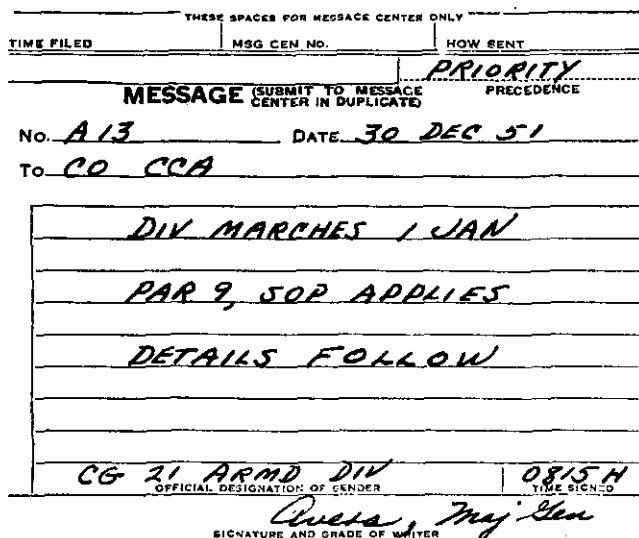 THESE SPACES FOR MESSAGE CENTER ONLY
TIME FILED MSG CEN NO. HOW SENT
PRIORITY
MESSAGE (SUBMIT TO MESSAGE CENTER IN DUPLICATE) PRECEDENCE
No. A13 DATE 30 DEC 51
To CO CCA
DIV MARCHES 1 JAN
PAR 9, SOP APPLIES
DETAILS FOLLOW
CG 21 ARMD DIV 0815 H
OFFICIAL DESIGNATION OF SENDER TIME SIGNED
Maj Gen
SIGNATURE AND GRADE OF WRITER